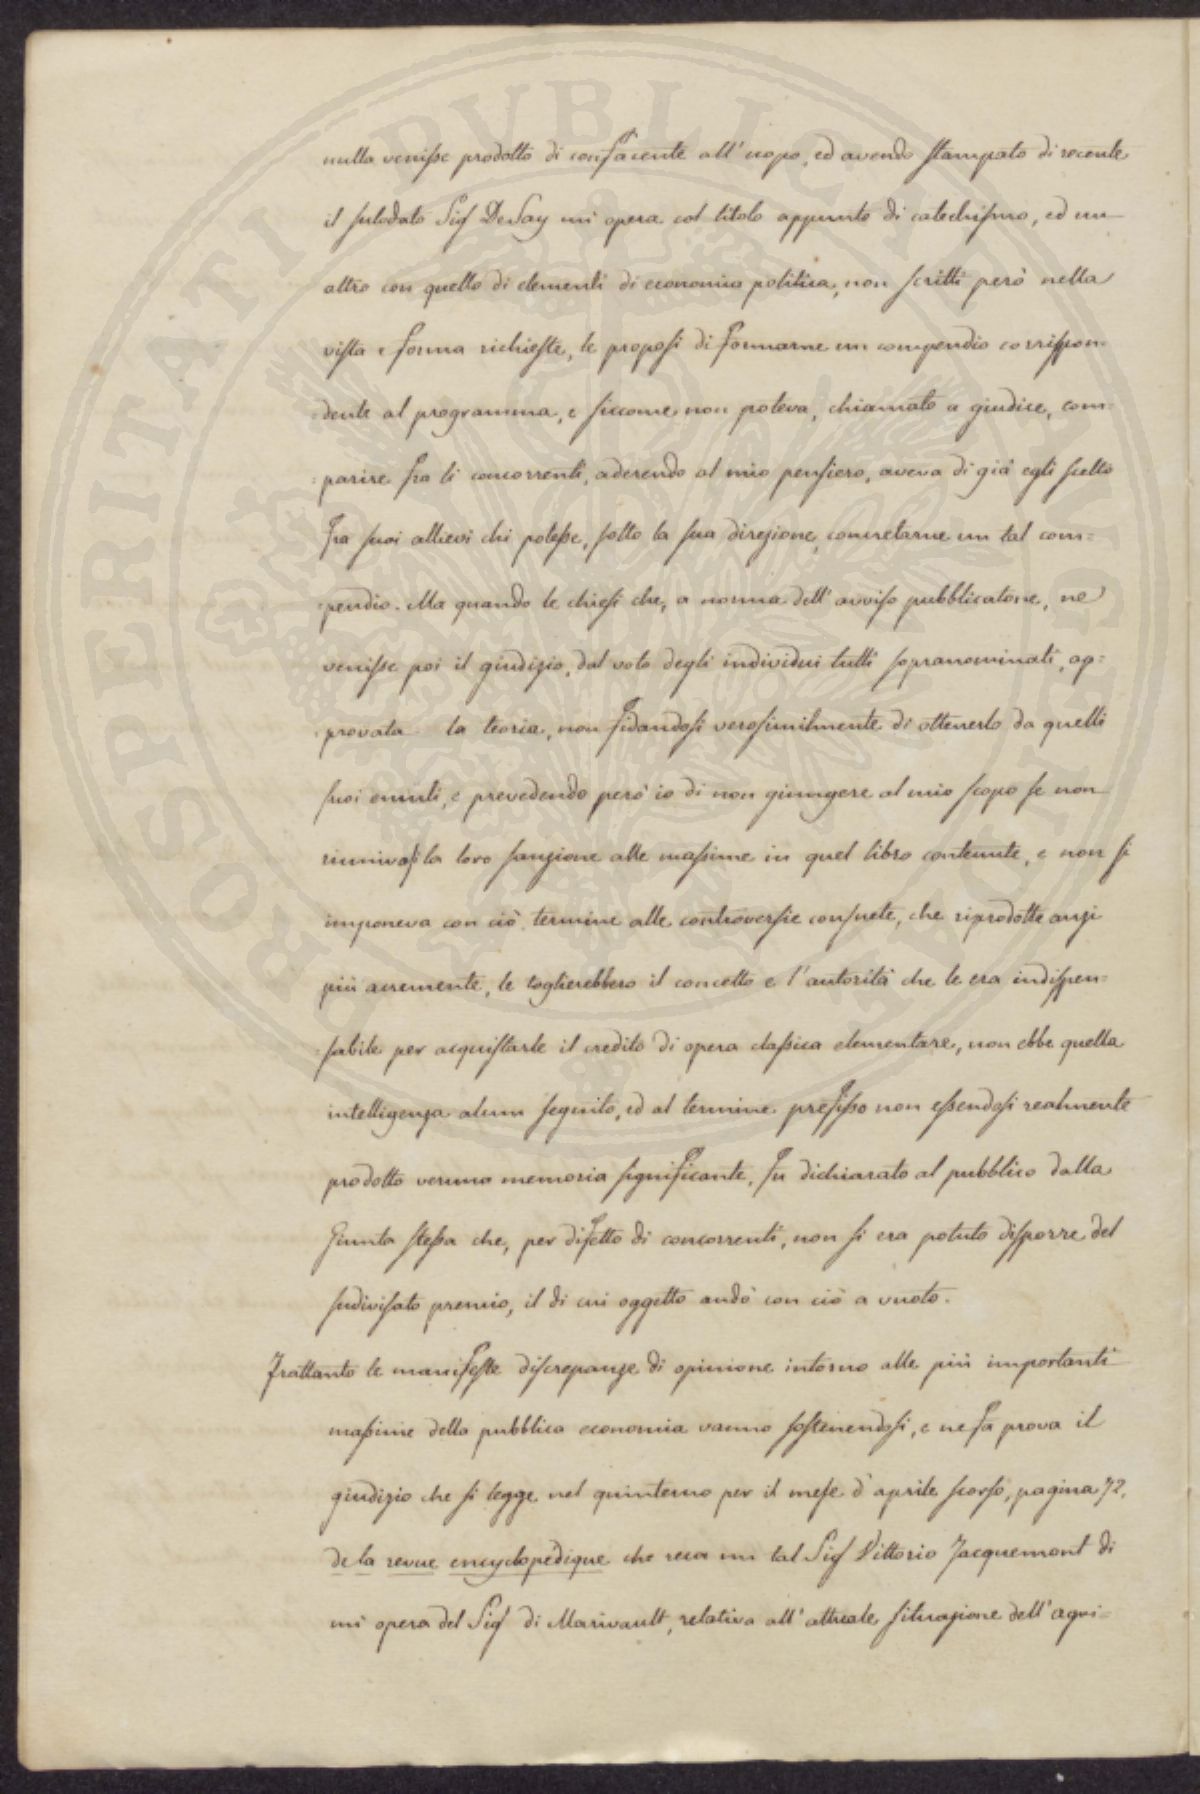 nulla venisse prodotto di confacente all' uopo, ed avendo stampato di recente
il sulodato Sig DeSay un' opera col titolo appunto di catechismo, ed un
altro con quello di elementi di economia politica, non scritti però nella
vista e forma richieste, le proposi di formarne un compendio corrispon=
=dente al programma, e siccome non poteva, chiamato a giudice, com=
=parire fra li concorrenti, aderendo al mio pensiero, aveva di già egli scelto
fra suoi allievi chi potesse, sotto la sua direzione, concretarne un tal com=
=pendio. Ma quando le chiesi che, a norma dell' avviso pubblicatone, ne
venisse poi il giudizio, dal voto degli individui tutti sopranominati, ap=
=provata la teoria, non fidandosi verosimilmente di ottenerlo da quelli
suoi emuli, e prevedendo però io di non giungere al mio scopo se non
riunivasi la loro sanzione alle massime in quel libro contenute, e non si
imponeva con ciò termine alle controversie consuete, che riprodotte anzi
più acremente, le toglierebbero il concetto e l'autorità che le era indispen=
=sabile per acquistarle il credito di opera classica elementare, non ebbe quella
intelligenza alcun seguito, ed al termine prefisso non essendosi realmente
prodotto veruna memoria significante, fu dichiarato al pubblico dalla
Giunta stessa che, per difetto di concorrenti, non si era potuto disporre del
sudivisato premio, il di cui oggetto andò con ciò a vuoto.
Frattanto le manifeste discrepanze di opinione intorno alle più importanti
massime della pubblica economia vanno sostenendosi, e ne fa prova il
giudizio che si legge nel quinterno per il mese d' aprile scorso, pagina 72,
de la revue encyclopedique che reca un tal Sig Vittorio Jacquemont di
un' opera del Sig di Marivault, relativa all' attuale situazione dell' agri=
PROSPERITATI PVBLICAE